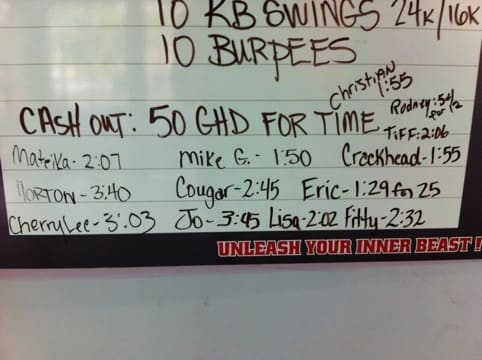 10 KB SWINGS 24K/16K
10 BURPEES
Christian 1:55
CASH OUT: 50 GHD FOR TIME
Rodney: 54/2
TIFF: 2:06
Mateika - 2:07 mike G. - 1:50 Crackhead - 1:55
HORTON - 3:40 Cougar - 2:45 Eric - 1:29 for 25
CherryLee - 3:03 Jo - 3:45 Lisa - 2:02 Fitty - 2:32
UNLEASH YOUR INNER BEAST!